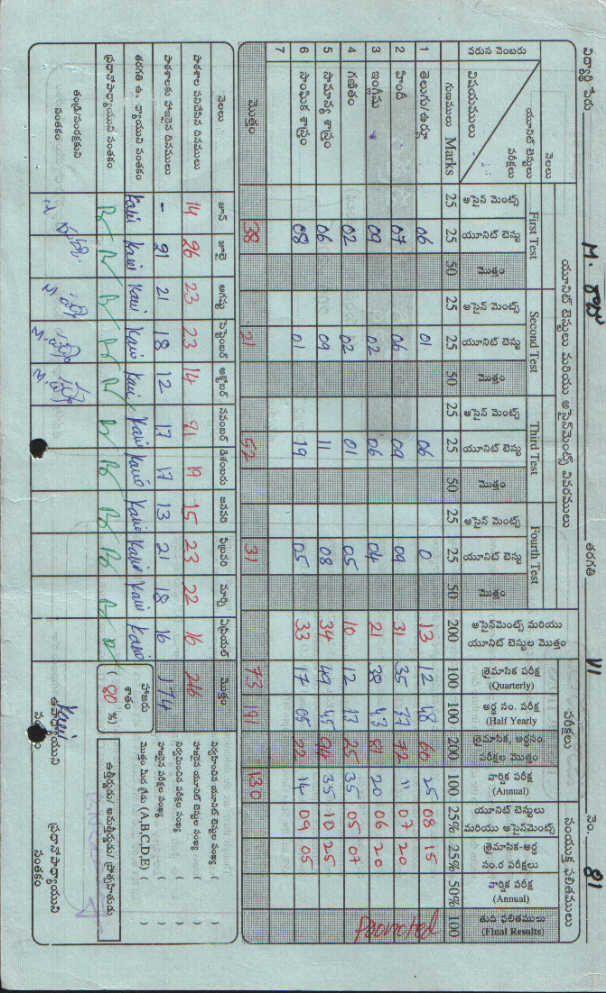 విద్యార్థి పేరు M. రవి తరగతి VI నెం. 81
యూనిట్ టెస్టులు మరియు అసైన్‌మెంట్స్ వివరములు పరీక్షలు సంయుక్త ఫలితములు
నెలలు
యూనిట్ టెస్టులు
పరీక్షలు
విషయములు
వరుస నెంబరు
గుణములు Marks
First Test Second Test Third Test Fourth Test
అసైన్ మెంట్స్ యూనిట్ టెస్టు మొత్తం అసైన్ మెంట్స్ యూనిట్ టెస్టు మొత్తం అసైన్ మెంట్స్ యూనిట్ టెస్టు మొత్తం అసైన్ మెంట్స్ యూనిట్ టెస్టు మొత్తం
అసైన్‌మెంట్స్ మరియు యూనిట్ టెస్టుల మొత్తం
త్రైమాసిక పరీక్ష (Quarterly)
అర్ధ సం. పరీక్ష (Half Yearly
త్రైమాసిక, అర్ధసం. పరీక్షల మొత్తం
వార్షిక పరీక్ష (Annual)
యూనిట్ టెస్టులు మరియు అసైన్‌మెంట్స్
త్రైమాసిక-అర్ధ సం.ర పరీక్షలు
వార్షిక పరీక్ష (Annual)
తుది ఫలితములు (Final Results)
25 25 50 25 25 50 25 25 50 25 25 50 200 100 100 200 100 25% 25% 50% 100
1 తెలుగు/ఉర్దూ 06 01 06 0 13 12 48 60 25 08 15
2 హిందీ 07 06 09 09 31 35 37 72 11 07 20
3 ఇంగ్లీషు 09 02 06 04 21 38 43 81 20 06 20
4 గణితం 02 02 01 05 10 12 13 25 35 05 07
5 సామాన్య శాస్త్రం 06 09 11 08 34 49 45 94 35 10 25
6 సాంఘిక శాస్త్రం 08 01 19 05 33 17 05 22 14 09 05
7
Promoted
మొత్తం 38 21 52 31 73 191 130
నెలలు జూన్ జూలై ఆగష్టు సెప్టెంబర్ అక్టోబర్ నవంబర్ డిశంబరు జనవరి ఫిబ్రవరి మార్చి ఏప్రియల్ మొత్తం
పాఠశాల పనిచేసిన దినములు 14 26 23 23 14 21 19 15 23 22 16 216
పాఠశాలకు హాజరైన దినములు - 21 21 18 12 17 17 13 21 18 16 174
తరగతి ఉ. ధ్యాయుని సంతకం
ప్రధానోపాధ్యాయుని సంతకం
తండ్రి/సంరక్షకుని సంతకం
హాజరు శాతం ( 80 %)
నిర్వహించిన యూనిట్ టెస్టుల సంఖ్య ( )
హాజరైన యూనిట్ టెస్టుల సంఖ్య ( )
నిర్వహించిన పరీక్షల సంఖ్య ( )
హాజరైన పరీక్షల సంఖ్య ( )
మొత్తం మీద గ్రేడు (A,B,C,D,E) ( )
ఉత్తీర్ణుడు/ అనుత్తీర్ణుడు/ ప్రోత్సహితుడు
ఉపాధ్యాయుని సంతకం
ప్రధానోపాధ్యాయుని సంతకం